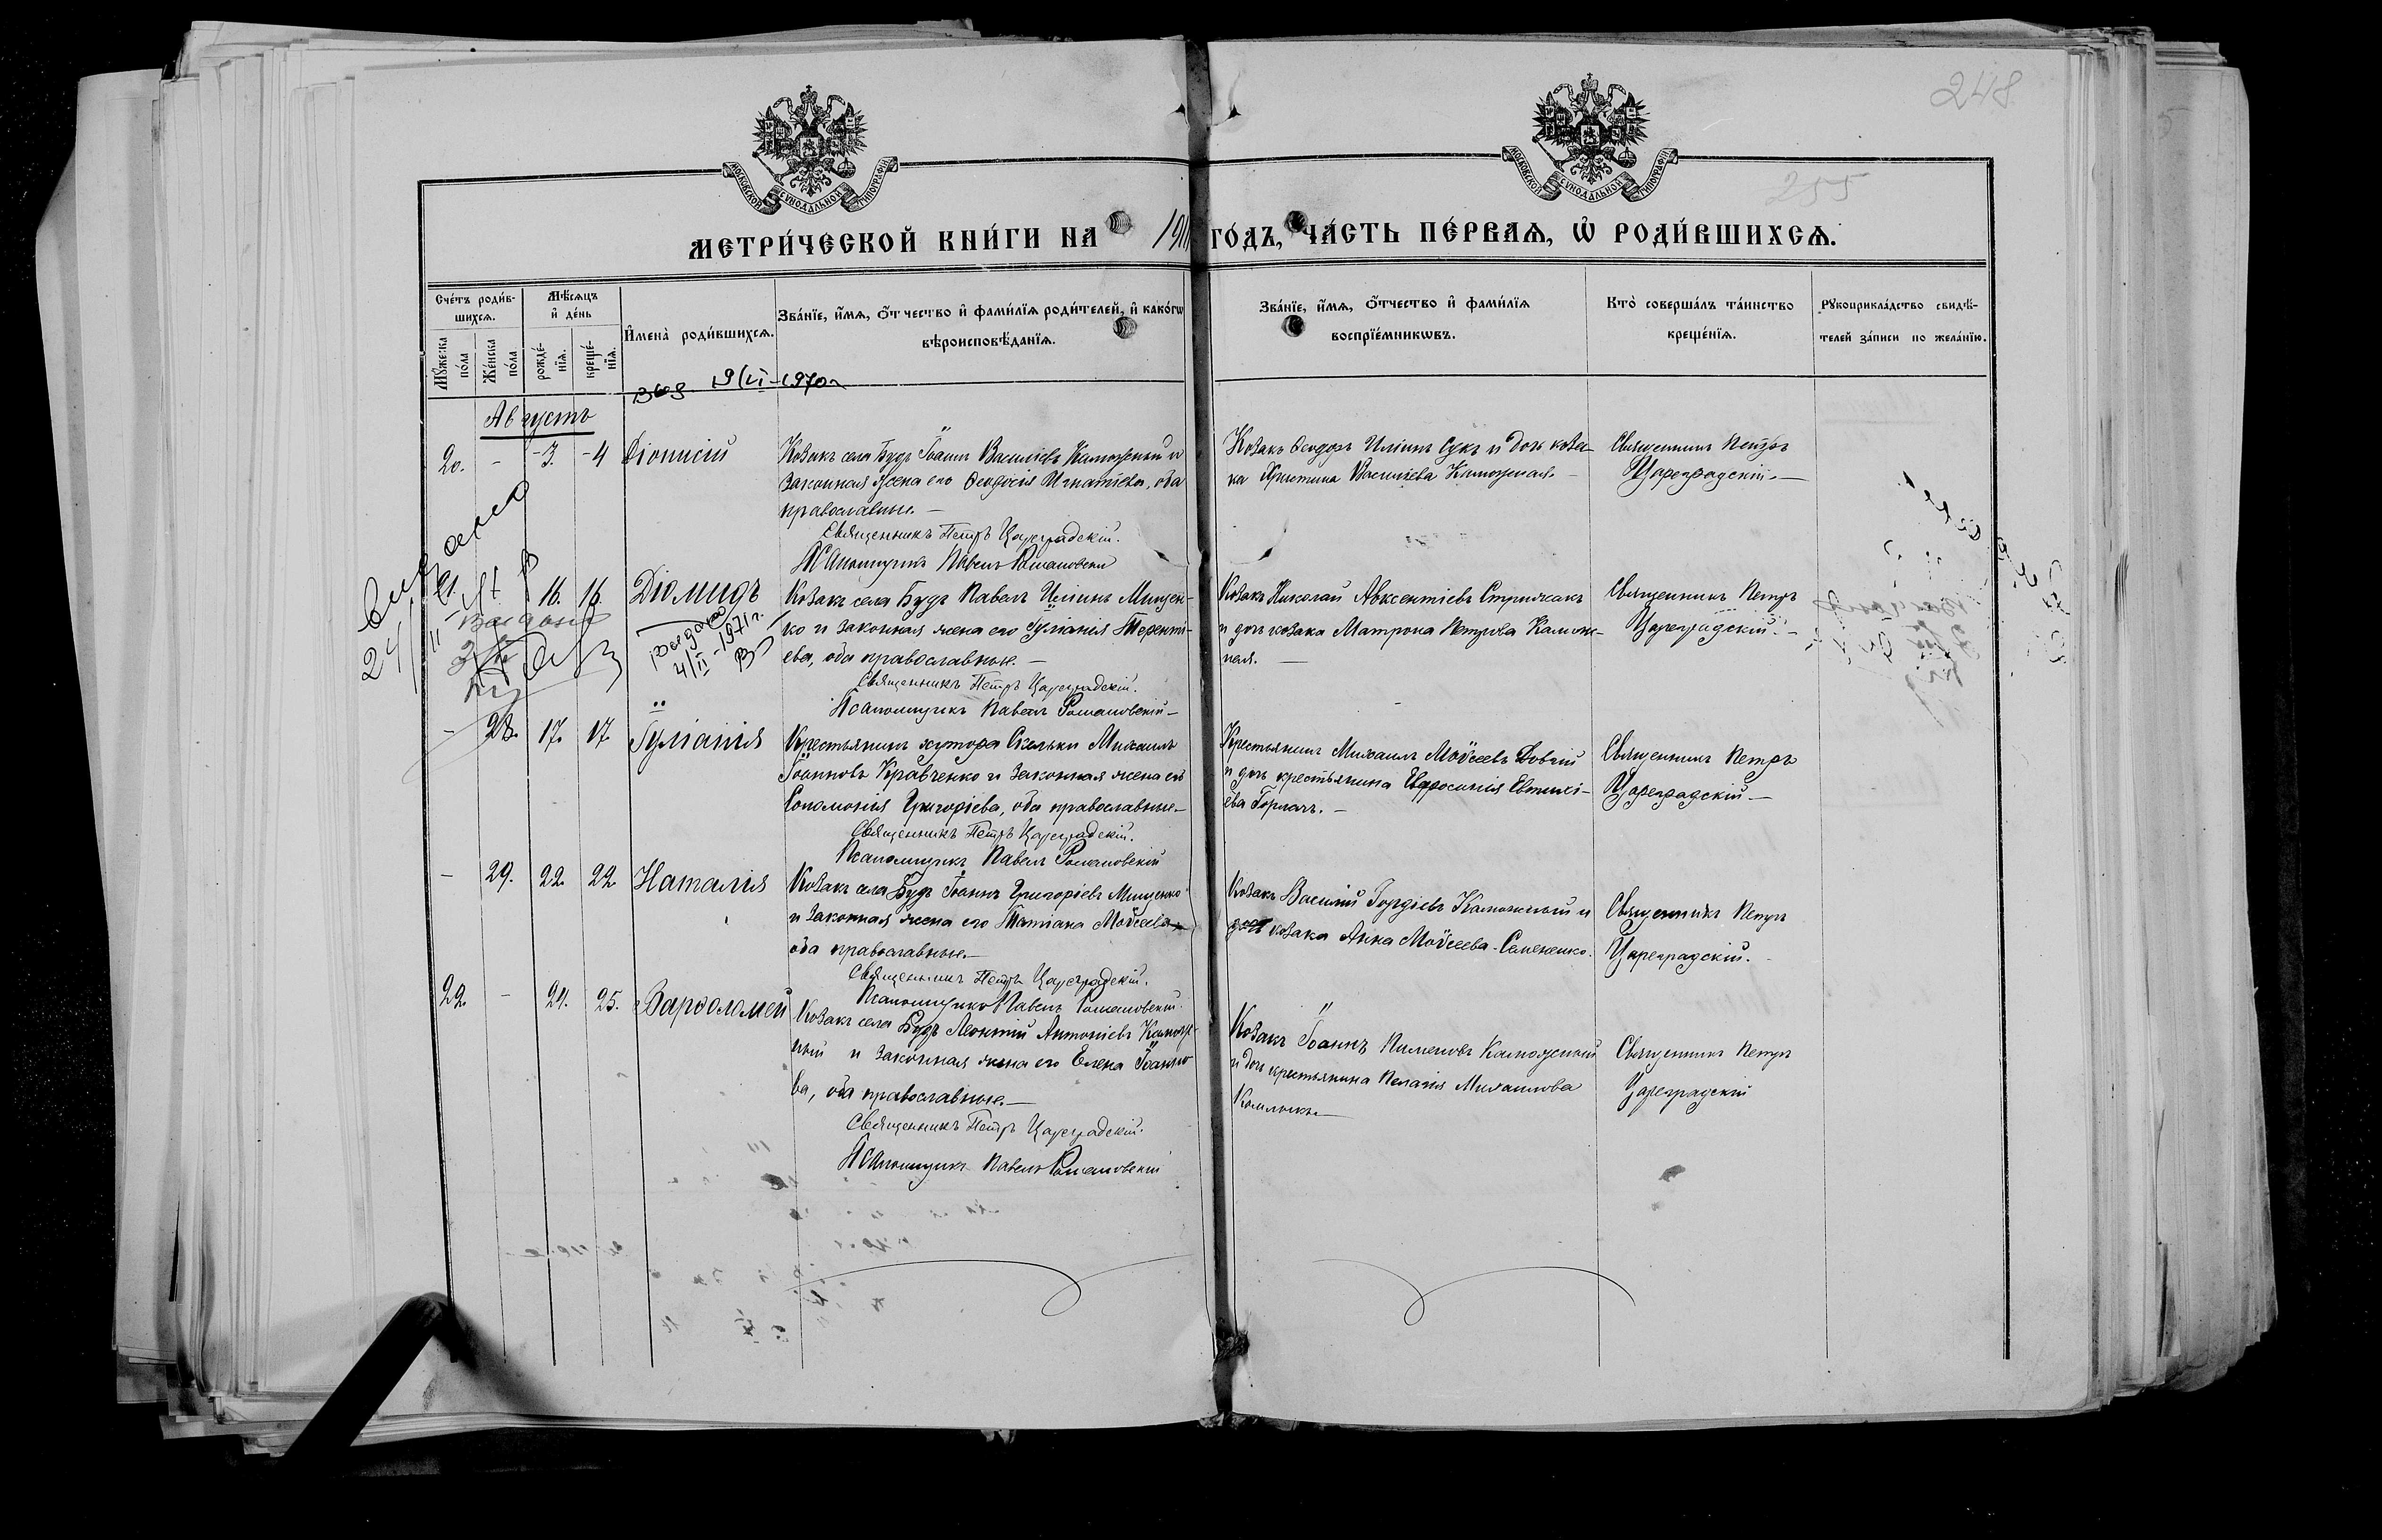 248
255
МОСКОВСКОЙ СѴНОДАЛЬНОЙ ТИПОГРАФІИ
МОСКОВСКОЙ СѴНОДАЛЬНОЙ ТИПОГРАФІИ
МЕТРИ́ЧЕСКОЙ КНИ́ГИ НА 191 ГО́ДЪ, ЧА́СТЬ ПЕ́РВАѦ, Ѡ҆ РОДИ́ВШИХСѦ.
Сче́тъ роди́в-
шихсѧ.
Му́жеска по́ла
Же́нска по́ла
Мѣ́сѧцъ и҆ де́нь
рожде́-
нїѧ.
креще́-
нїѧ.
И҆мена̀ роди́вшихсѧ.
Зва́нїе, и҆́мѧ, ѻ҆́тчество и҆ фами́лїѧ роди́телей, и҆ како́гѡ
вѣроисповѣ́данїѧ.
Зва́нїе, и҆́мѧ, ѻ҆́тчество и҆ фами́лїѧ
воспрїе́мникѡвъ.
Кто̀ соверша́лъ та́инство
креще́нїѧ.
Рꙋкоприкла́дство свидѣ́-
телей за́писи по жела́нїю.
19/VI-1970г
Августъ
20. - 3. 4 Діонисій
Козакъ села Будъ Іоаннъ Василіевъ Каможный и
законная жена его Ѳеодосія Игнатіева, оба
православные. —
Священникъ Петръ Цареградскій.
Псаломщикъ Павелъ Романовскій
Козакъ Ѳеодоръ Иліинъ Сукъ и дочь коза-
ка Христина Василіева Каможная. —
Священникъ Петръ
Цареградскій. —
21. 16. 16. Діомидъ
4/II-1971г.
24/II
Козакъ села Будъ Павелъ Иліинъ Мищен-
ко и законная жена его Іуліанія Теренті-
ева, оба православные. —
Священникъ Петръ Цареградскій.
Псаломщикъ Павелъ Романовскій —
Козакъ Николай Авксентіевъ Стрижакъ
и дочь козака Матрона Петрова Камож-
ная. —
Священникъ Петръ
Цареградскій. —
- 28. 17. 17. Іуліанія
Крестьянинъ хутора Скельки Михаилъ
Іоанновъ Кравченко и законная жена его
Соломонія Григоріева, оба православные. —
Священникъ Петръ Цареградскій.
Псаломщикъ Павелъ Романовскій
Крестьянинъ Михаилъ Мойсеевъ Довгій
и дочь крестьянина Евфросинія Евтихі-
ева Горлачъ. —
Священникъ Петръ
Цареградскій —
- 29. 22. 22. Наталія
Козакъ села Будъ Іоаннъ Григоріевъ Мищенко
и законная жена его Татіана Мойсеева
оба православные. —
Священникъ Петръ Цареградскій.
Псаломщикъ Павелъ Романовскій.
Козакъ Василій Гордіевъ Каможный и
дочь козака Анна Мойсеева Семененко.
Священникъ Петръ
Цареградскій.
22. - 24. 25. Варѳоломей
Козакъ села Будъ Леонтій Антоніевъ Камож-
ный и законная жена его Елена Іоанно
ва, оба православные. —
Священникъ Петръ Цареградскій.
Псаломщикъ Павелъ Романовскій
Козакъ Іоаннъ Пименовъ Каможный
и дочь крестьянина Пелагія Михаилова
Священникъ Петръ
Цареградскій